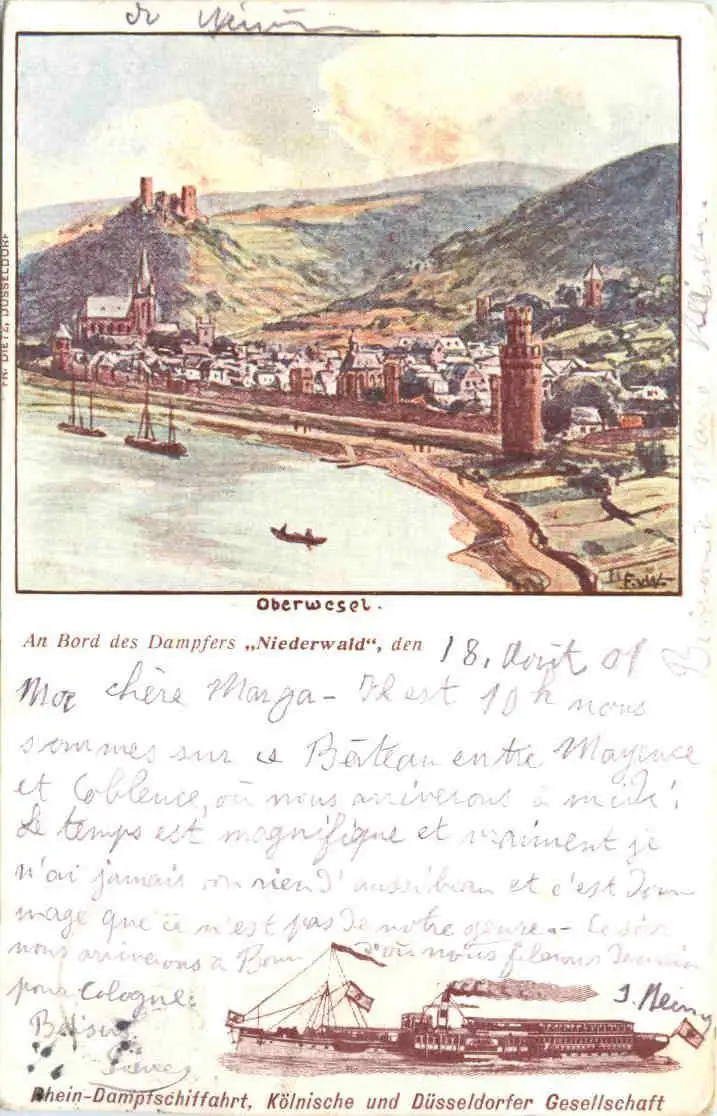 FR. DIETZ, DÜSSELDORF
F.v.W.
Oberwesel.
An Bord des Dampfers „Niederwald“, den 18. Août 01
Ma chère Marga - Il est 10h nous
sommes sur ce Bateau entre Mayence
et Coblence, où nous arriverons à midi.
Le temps est magnifique et vraiment je
n'ai jamais vu rien d'aussi beau et c'est dom
mage que ce n'est pas de notre genre. - Ce soir
nous arriverons à Bonn d'où nous filerons demain
pour Cologne.
Pierre
Rhein-Dampfschiffahrt, Kölnische und Düsseldorfer Gesellschaft